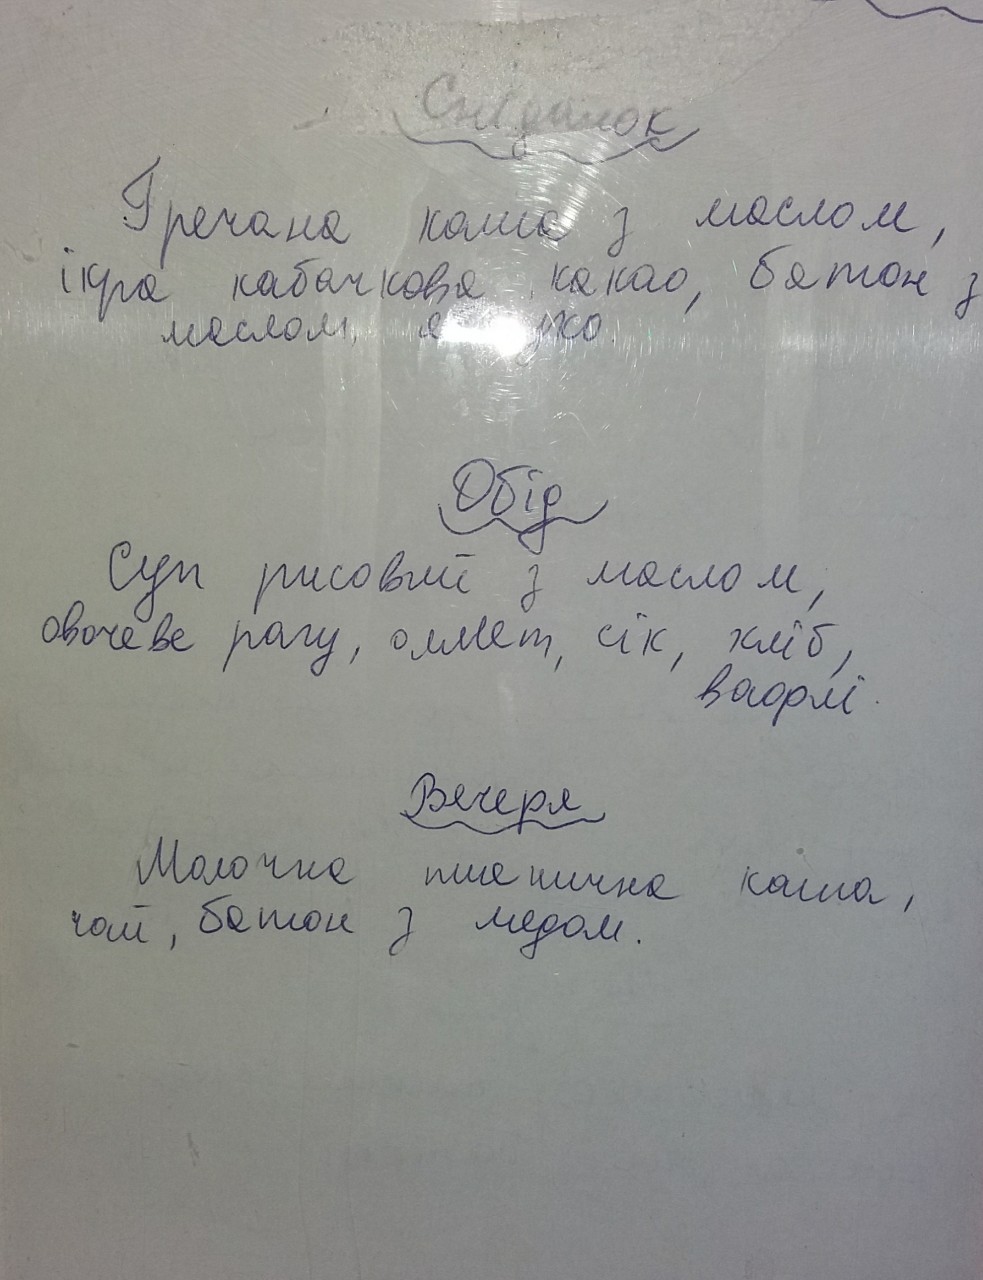 Сніданок
Гречана каша з маслом,
ікра кабачкова, какао, батон з
маслом,
Обід
Суп рисовий з маслом,
овочеве рагу, омлет, сік, хліб,
вафлі.
Вечеря
Молочна пшенична каша,
чай, батон з медом.